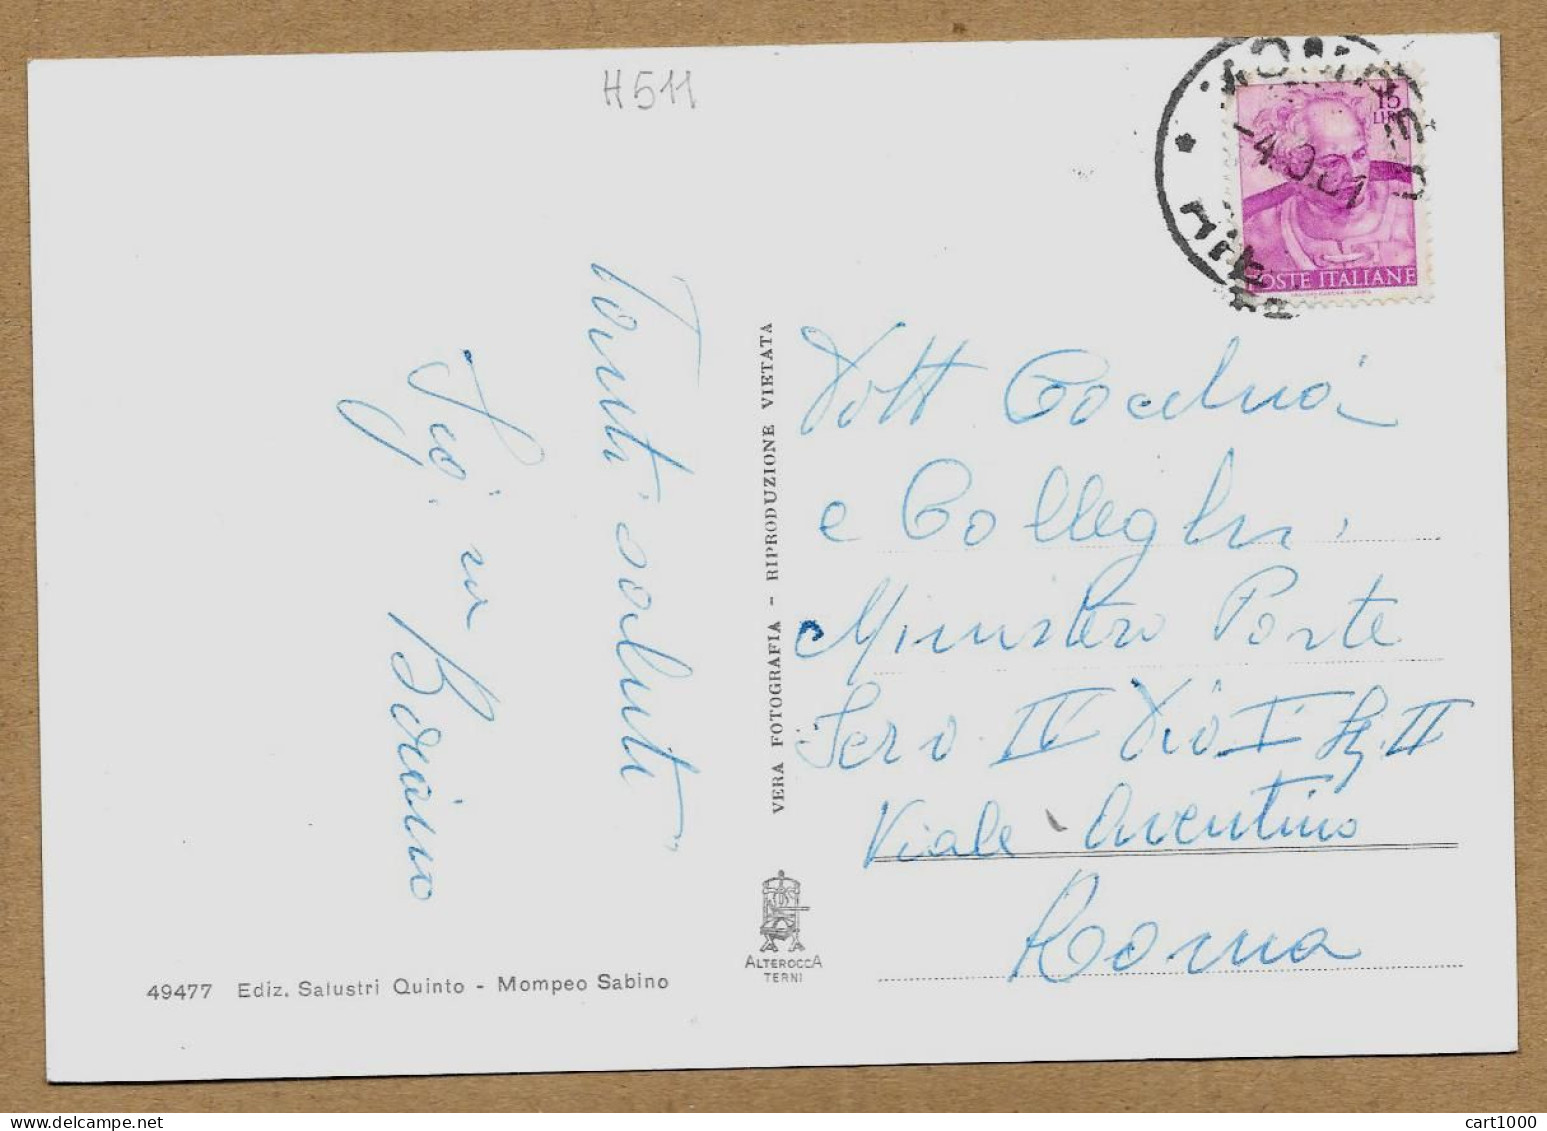 H511
15
LIRE
POSTE ITALIANE
Tanti saluti
VERA FOTOGRAFIA - RIPRODUZIONE VIETATA
Dott Cocchia
e Colleghi
Ministero Poste
Serv. IV Div I Sez. II
Viale Aventino
Roma
ALTEROCCA
TERNI
49477 Ediz. Salustri Quinto - Mompeo Sabino
cart1000